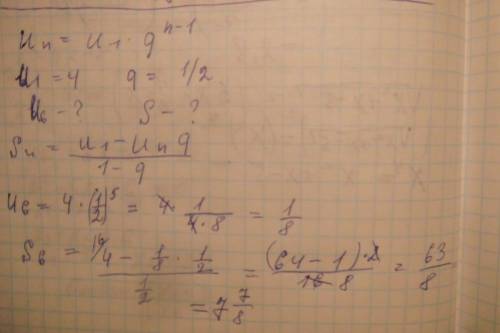 Un = U1 · q^(n-1)
U1 = 4 q = 1/2
U6 - ? S - ?
Sn = (U1 - Un q) / (1 - q)
U6 = 4 · (1/2)^5 = 4 · 1 / (4 · 8) = 1/8
S6 = (16/4 - 1/8 · 1/2) / (1/2) = (64 - 1) · 2 / (16 8) = 63/8
= 7 7/8